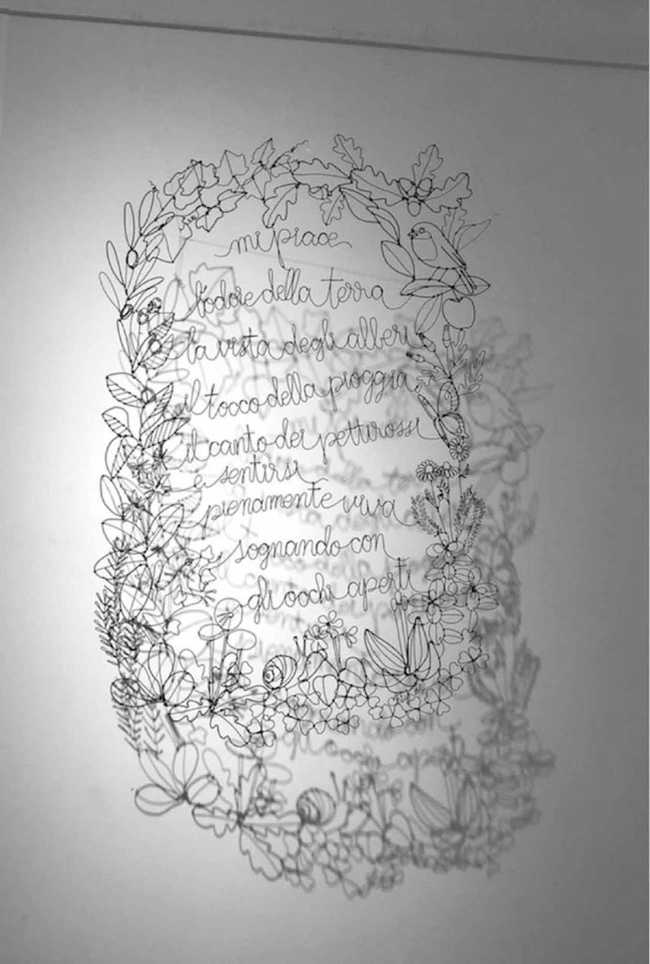 mi piace
l'odore della terra
la vista degli alberi
il tocco della pioggia
il canto dei pettirossi
e sentirsi
pienamente viva
sognando con
gli occhi aperti